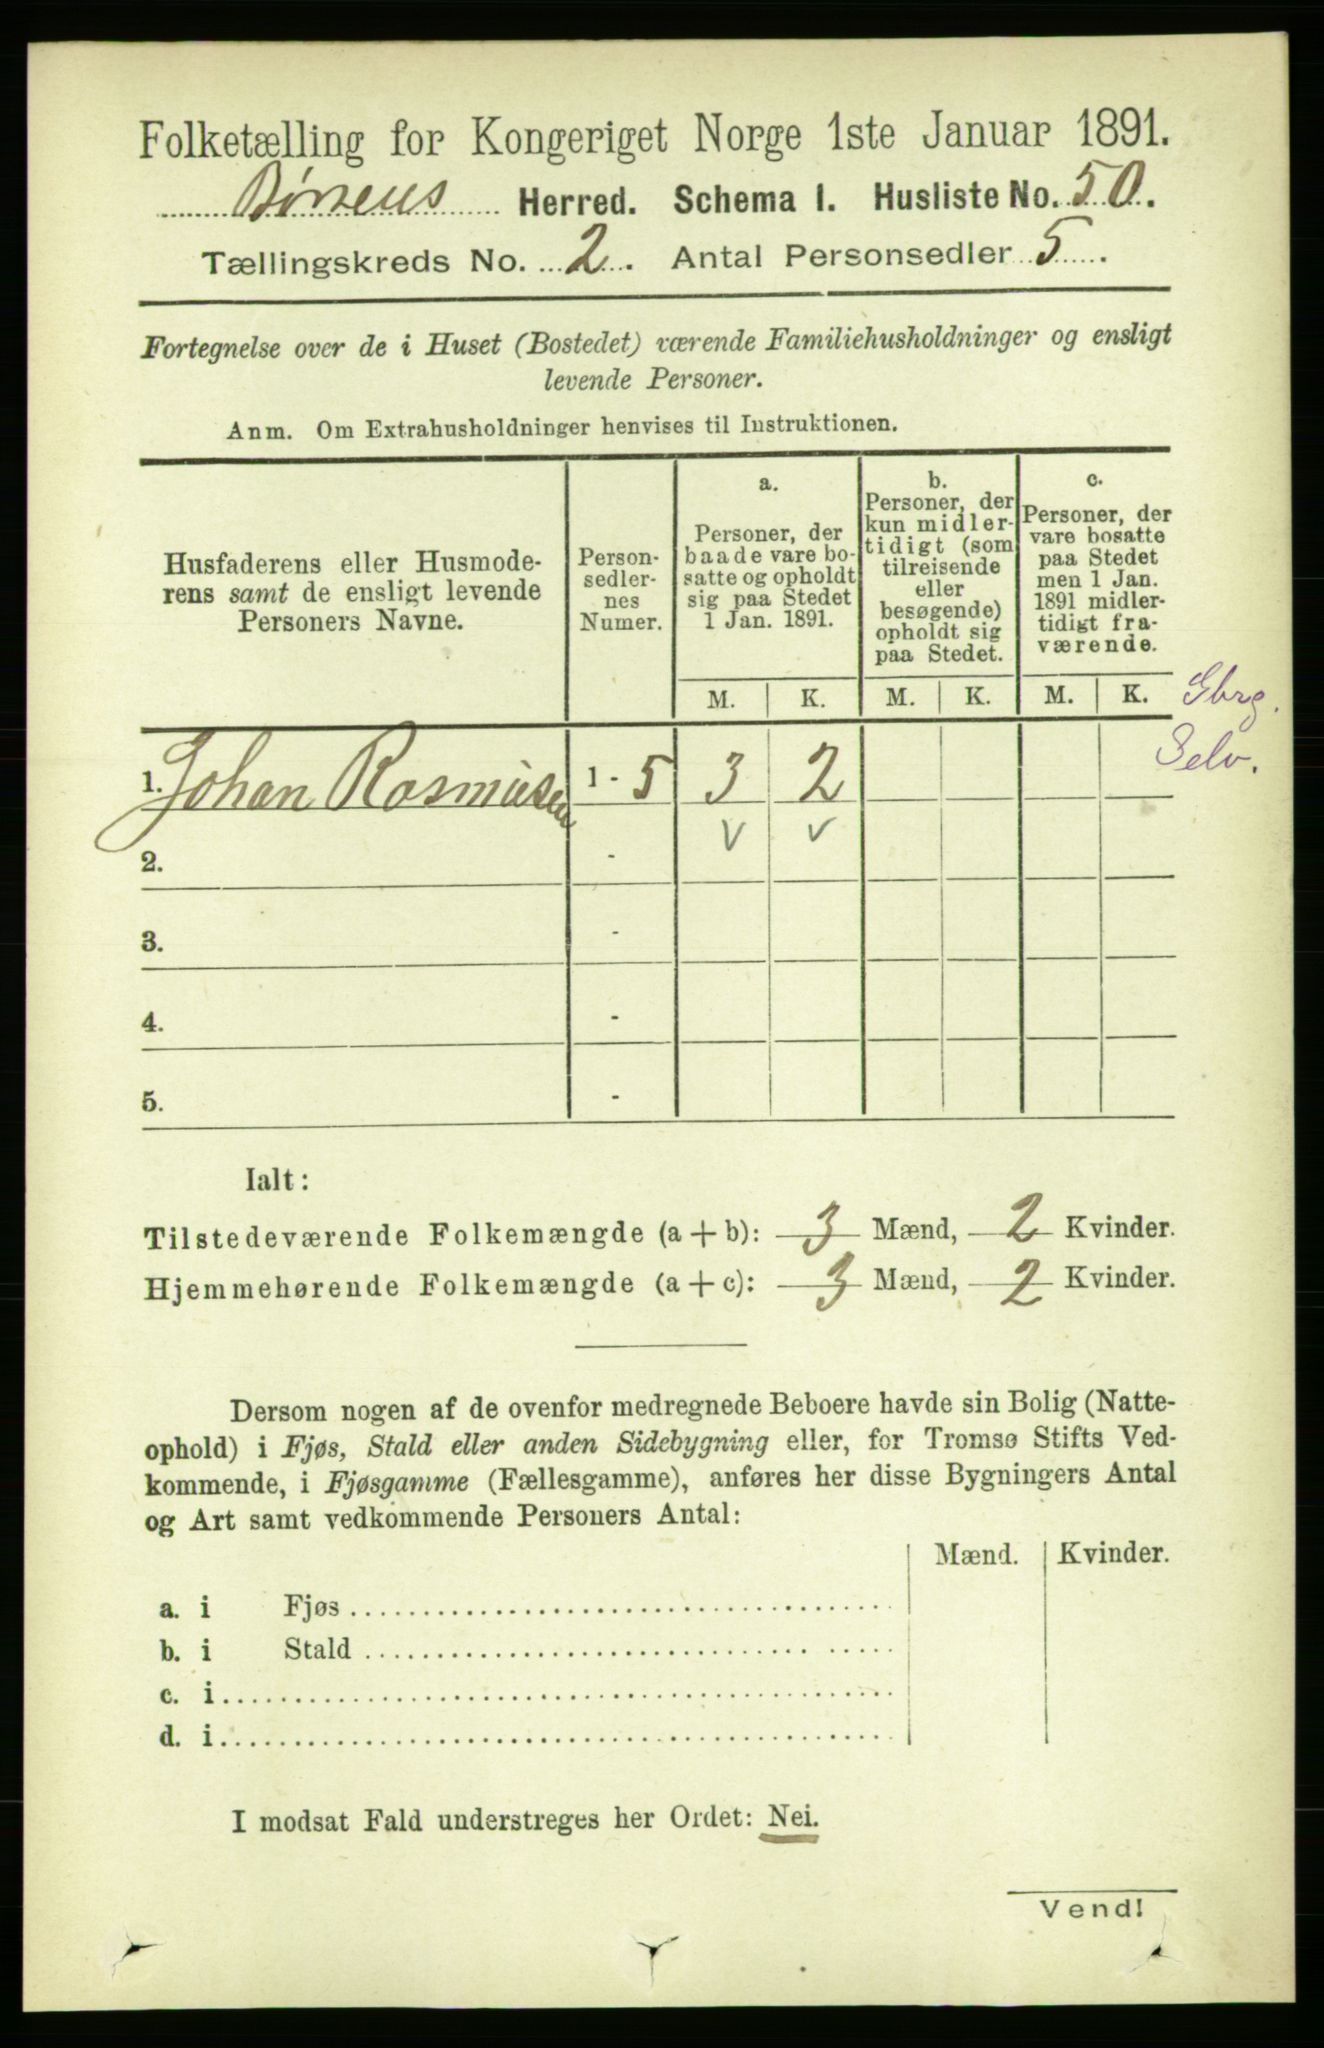 Folketælling for Kongeriget Norge 1ste Januar 1891.
Børsens Herred. Schema I. Husliste No. 50.
Tællingskreds No. 2. Antal Personsedler 5.
Fortegnelse over de i Huset (Bostedet) værende Familiehusholdninger og ensligt
levende Personer.
Anm. Om Extrahusholdninger henvises til Instruktionen.
Husfaderens eller Husmode-
rens samt de ensligt levende
Personers Navne.
Person-
sedler-
nes
Numer.
a.
Personer, der
baade vare bo-
satte og opholdt
sig paa Stedet
1 Jan. 1891.
b.
Personer, der
kun midler-
tidigt (som
tilreisende
eller
besøgende)
opholdt sig
paa Stedet.
c.
Personer, der
vare bosatte
paa Stedet
men 1 Jan.
1891 midler-
tidigt fra-
værende.
M. K. M. K. M. K.
Gbrg.
Selv.
1. Johan Rasmusen 1 - 5 3 2
v v
2. -
3. -
4. -
5. -
Ialt:
Tilstedeværende Folkemængde (a + b): 3 Mænd, 2 Kvinder.
Hjemmehørende Folkemængde (a + c): 3 Mænd, 2 Kvinder.
Dersom nogen af de ovenfor medregnede Beboere havde sin Bolig (Natte-
ophold) i Fjøs, Stald eller anden Sidebygning eller, for Tromsø Stifts Ved-
kommende, i Fjøsgamme (Fællesgamme), anføres her disse Bygningers Antal
og Art samt vedkommende Personers Antal:
Mænd. Kvinder.
a. i Fjøs
b. i Stald
c. i
d. i
I modsat Fald understreges her Ordet: Nei.
Vend!